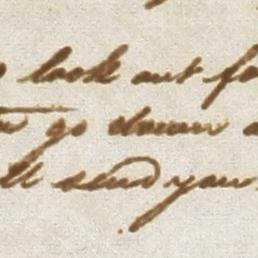 look out fo
go down a
ll send you